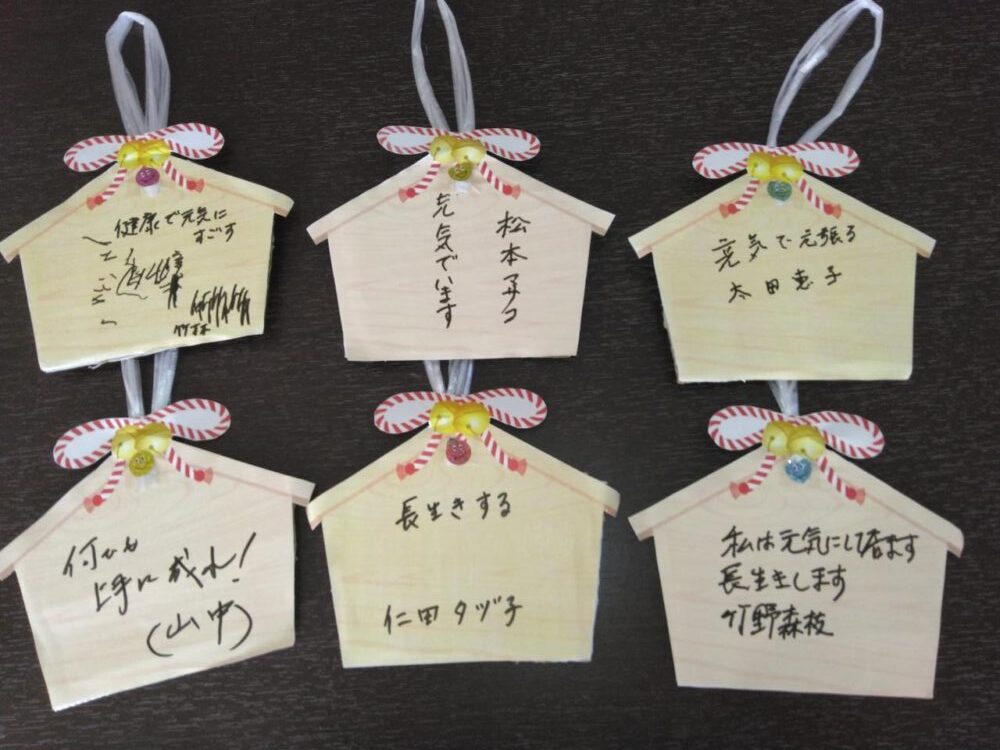 健康で元気に
すごす
竹林
元気でいます
松本マサコ
元気で元張る
太田恵子
何でも
上手に成れ!
(山中)
長生きする
仁田タヅ子
私は元気にして居ます
長生きします
竹野森枝